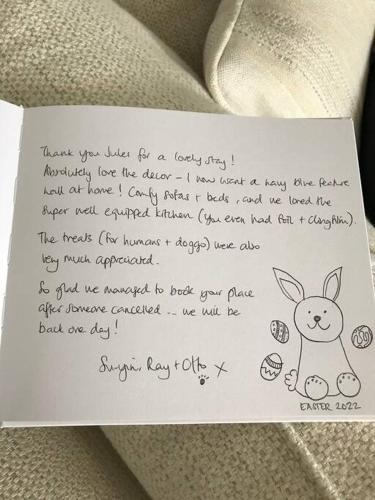 Thank you Jules for a lovely stay!
Absolutely love the decor - I now want a navy blue feature
wall at home! Comfy sofas + beds, and we loved the
super well equipped kitchen (you even had foil + clingfilm).
The treats (for humans + doggo) were also
very much appreciated.
So glad we managed to book your place
after someone cancelled... we will be
back one day!
Ray + Otto X
EASTER 2022